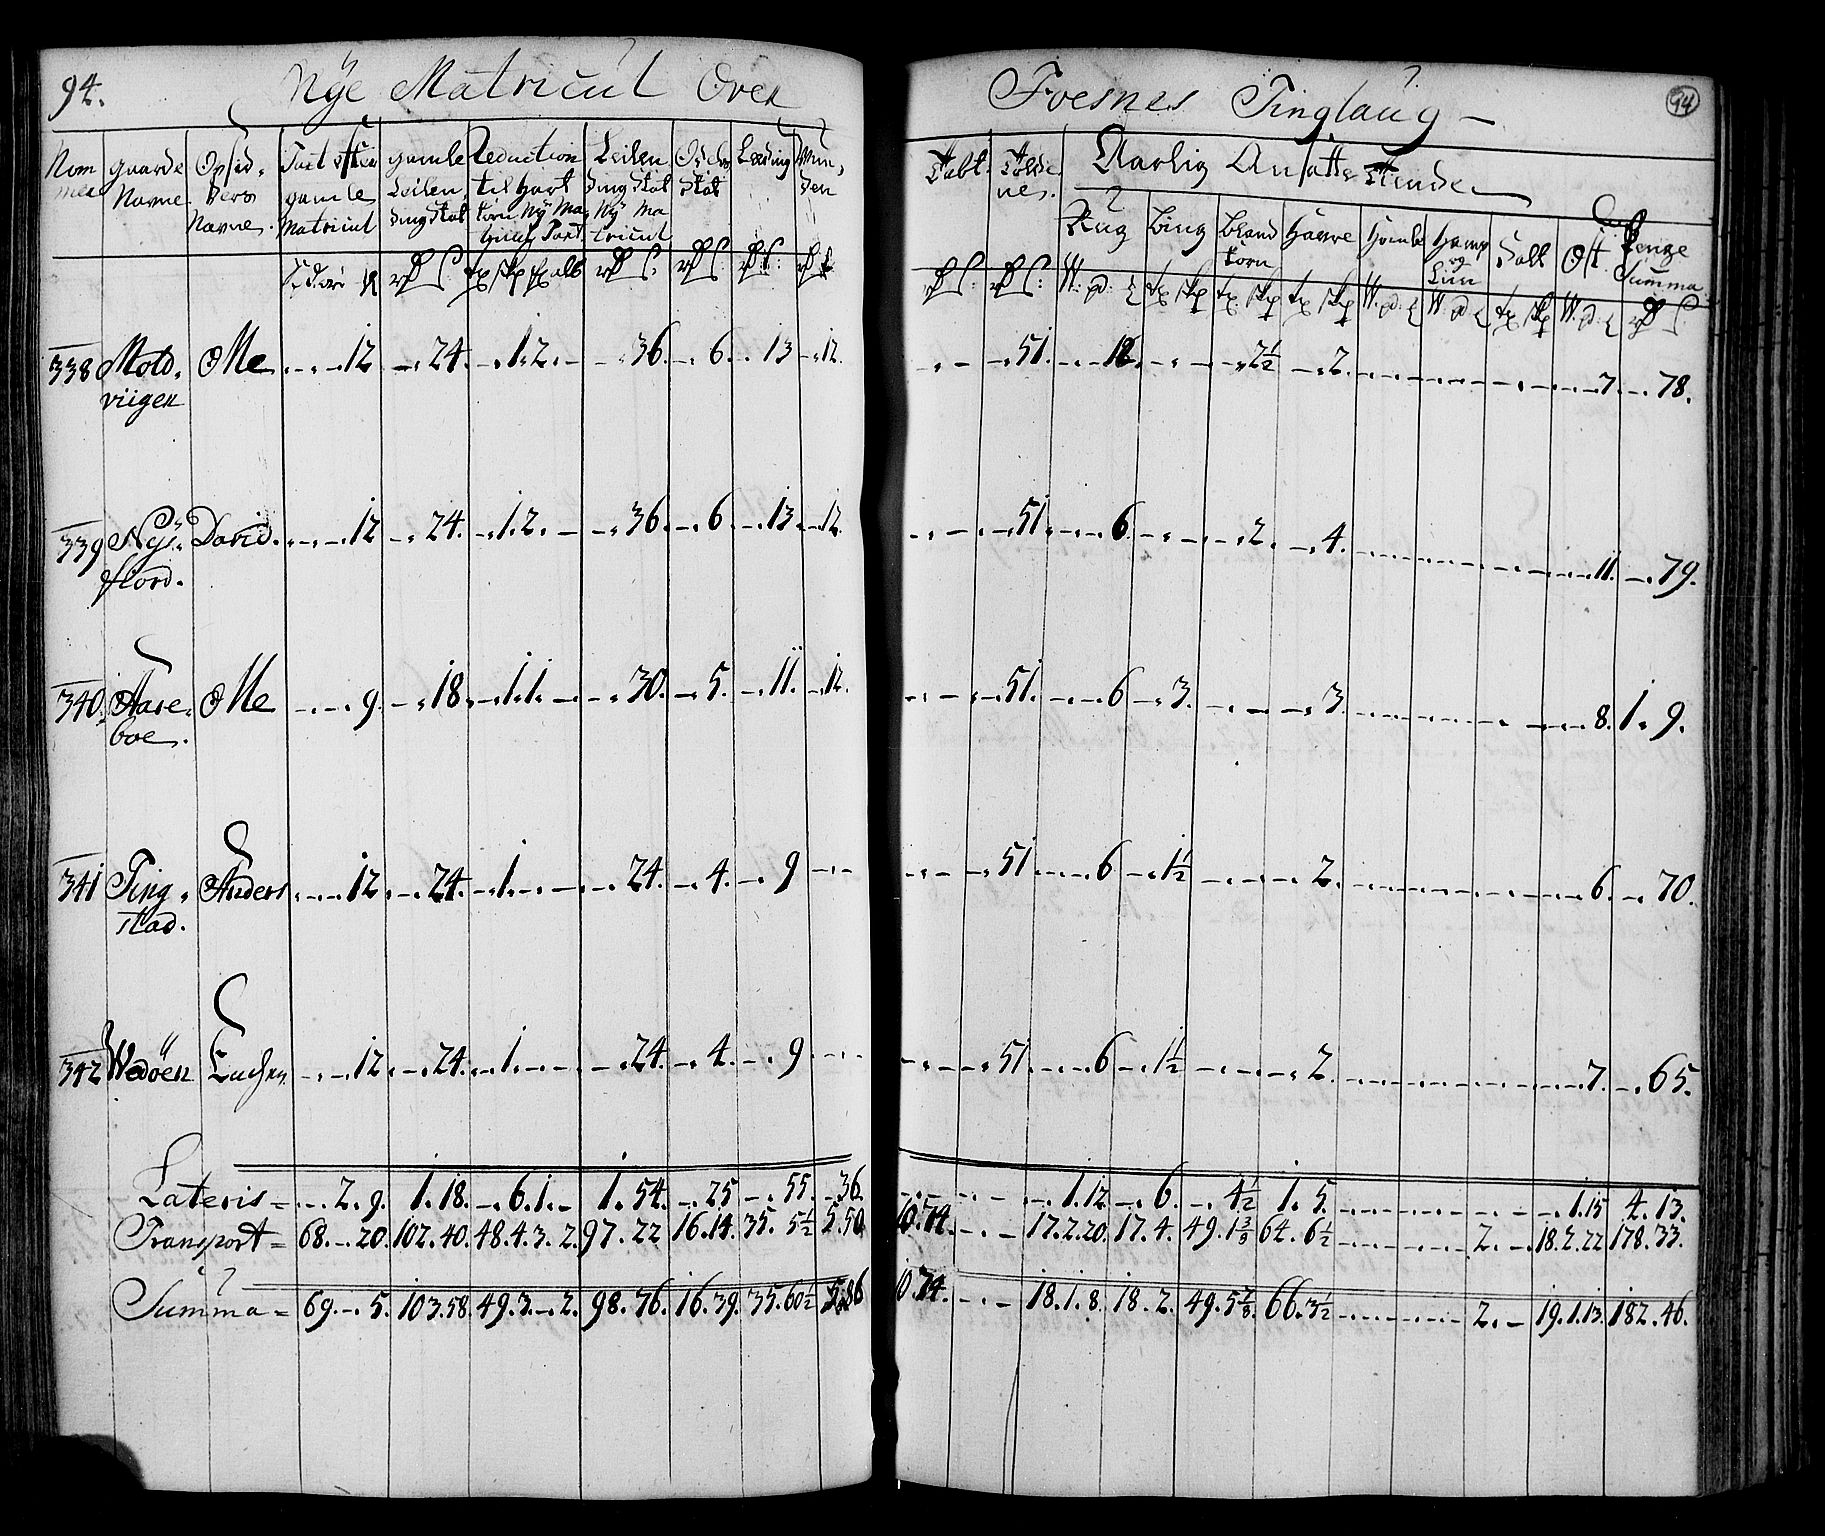 94. Nye Matricul Over Foesnes Tinglaug 94
Nom mer | Gaarde Navne. | Opsid, ders Navne. | Taxt efter gamle Matricul | gamle Leilen, dings Skat | Reduction til Hart Korn Ny Ma, Taxt | Leilen dings Skat Ny Ma tricul | Odels Skat | Leeding | Mun, den | Tabt | Tolde ne. | Aarlig Ansatte Tiende
Rug | Biug | Bland Korn | Haure | Homle | Hamp og Liin | Salt | Ost | Penge Summa
338 Mold, Ole 12 24. 1. 2. 36. 6. 13 12. 51. 12. 2½ 2. 7. 78.
viigen
339 Nye David. 12 24. 1. 2. 36. 6 13. 12. 51. 6. 2. 4. 11. 79.
fiord.
340. Aare, Ole 9. 18. 1. 1. 30. 5. 11. 12. 51. 6 3. 3. 8. 1. 9.
boe.
341 Ting, Anders 12 24. 1. 24. 4. 9 51 6 1½ 2. 6. 70.
stad.
342 Wedøen 12 24. 1. 24. 4. 9 51. 6 1½ 2. 7. 65.
Lateris = 2. 9. 1. 18. 6. 1. 1. 54. 25 55. 36. 1. 12. 6. 4½ 1. 5. 1. 15 4. 13.
Transport = 68. 20. 102. 40. 48. 4. 3. 2. 97. 22 16. 14. 35. 5½ 5. 50. 10. 74. 17. 2. 20. 17. 4. 49. 64. 6½ 2. 18. 2. 22 178. 33.
Summa = 69. 5. 103. 58. 49. 3. 2. 98. 76. 16. 39. 35. 60½ 5. 86 10. 74. 18. 1. 8. 18. 2. 49. 66. 3½ 2. 19. 1. 13. 182. 46.